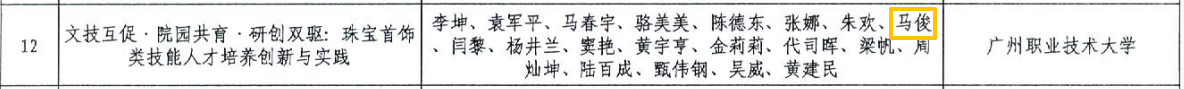 12
文技互促·院园共育·研创双驱：珠宝首饰
类技能人才培养创新与实践
李坤、袁军平、马春宇、骆美美、陈德东、张娜、朱欢、马俊
、闫黎、杨井兰、窦艳、黄宇亨、金莉莉、代司晖、梁帆、周
灿坤、陆百成、甄伟钢、吴威、黄建民
广州职业技术大学